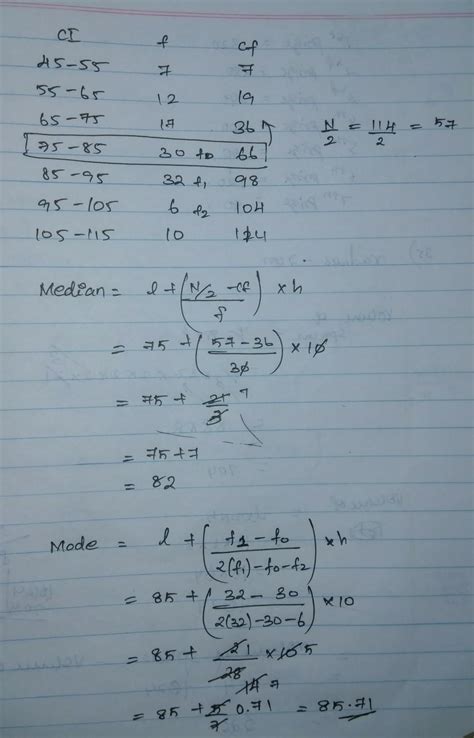 CI f cf
45-55 7 7
55-65 12 19
65-75 17 36
75-85 30 f0 66
85-95 32 f1 98
95-105 6 f2 104
105-115 10 114
N/2 = 114/2 = 57
Median = l + (N/2 - cf / f) × h
= 75 + (57 - 36 / 30) × 10
= 75 + 21/3 7
= 75 + 7
= 82
Mode = l + (f1 - f0 / 2(f1) - f0 - f2) × h
= 85 + (32 - 30 / 2(32) - 30 - 6) × 10
= 85 + 21/28 × 10 5
14 7
= 85 + 5/7 0.71 = 85.71